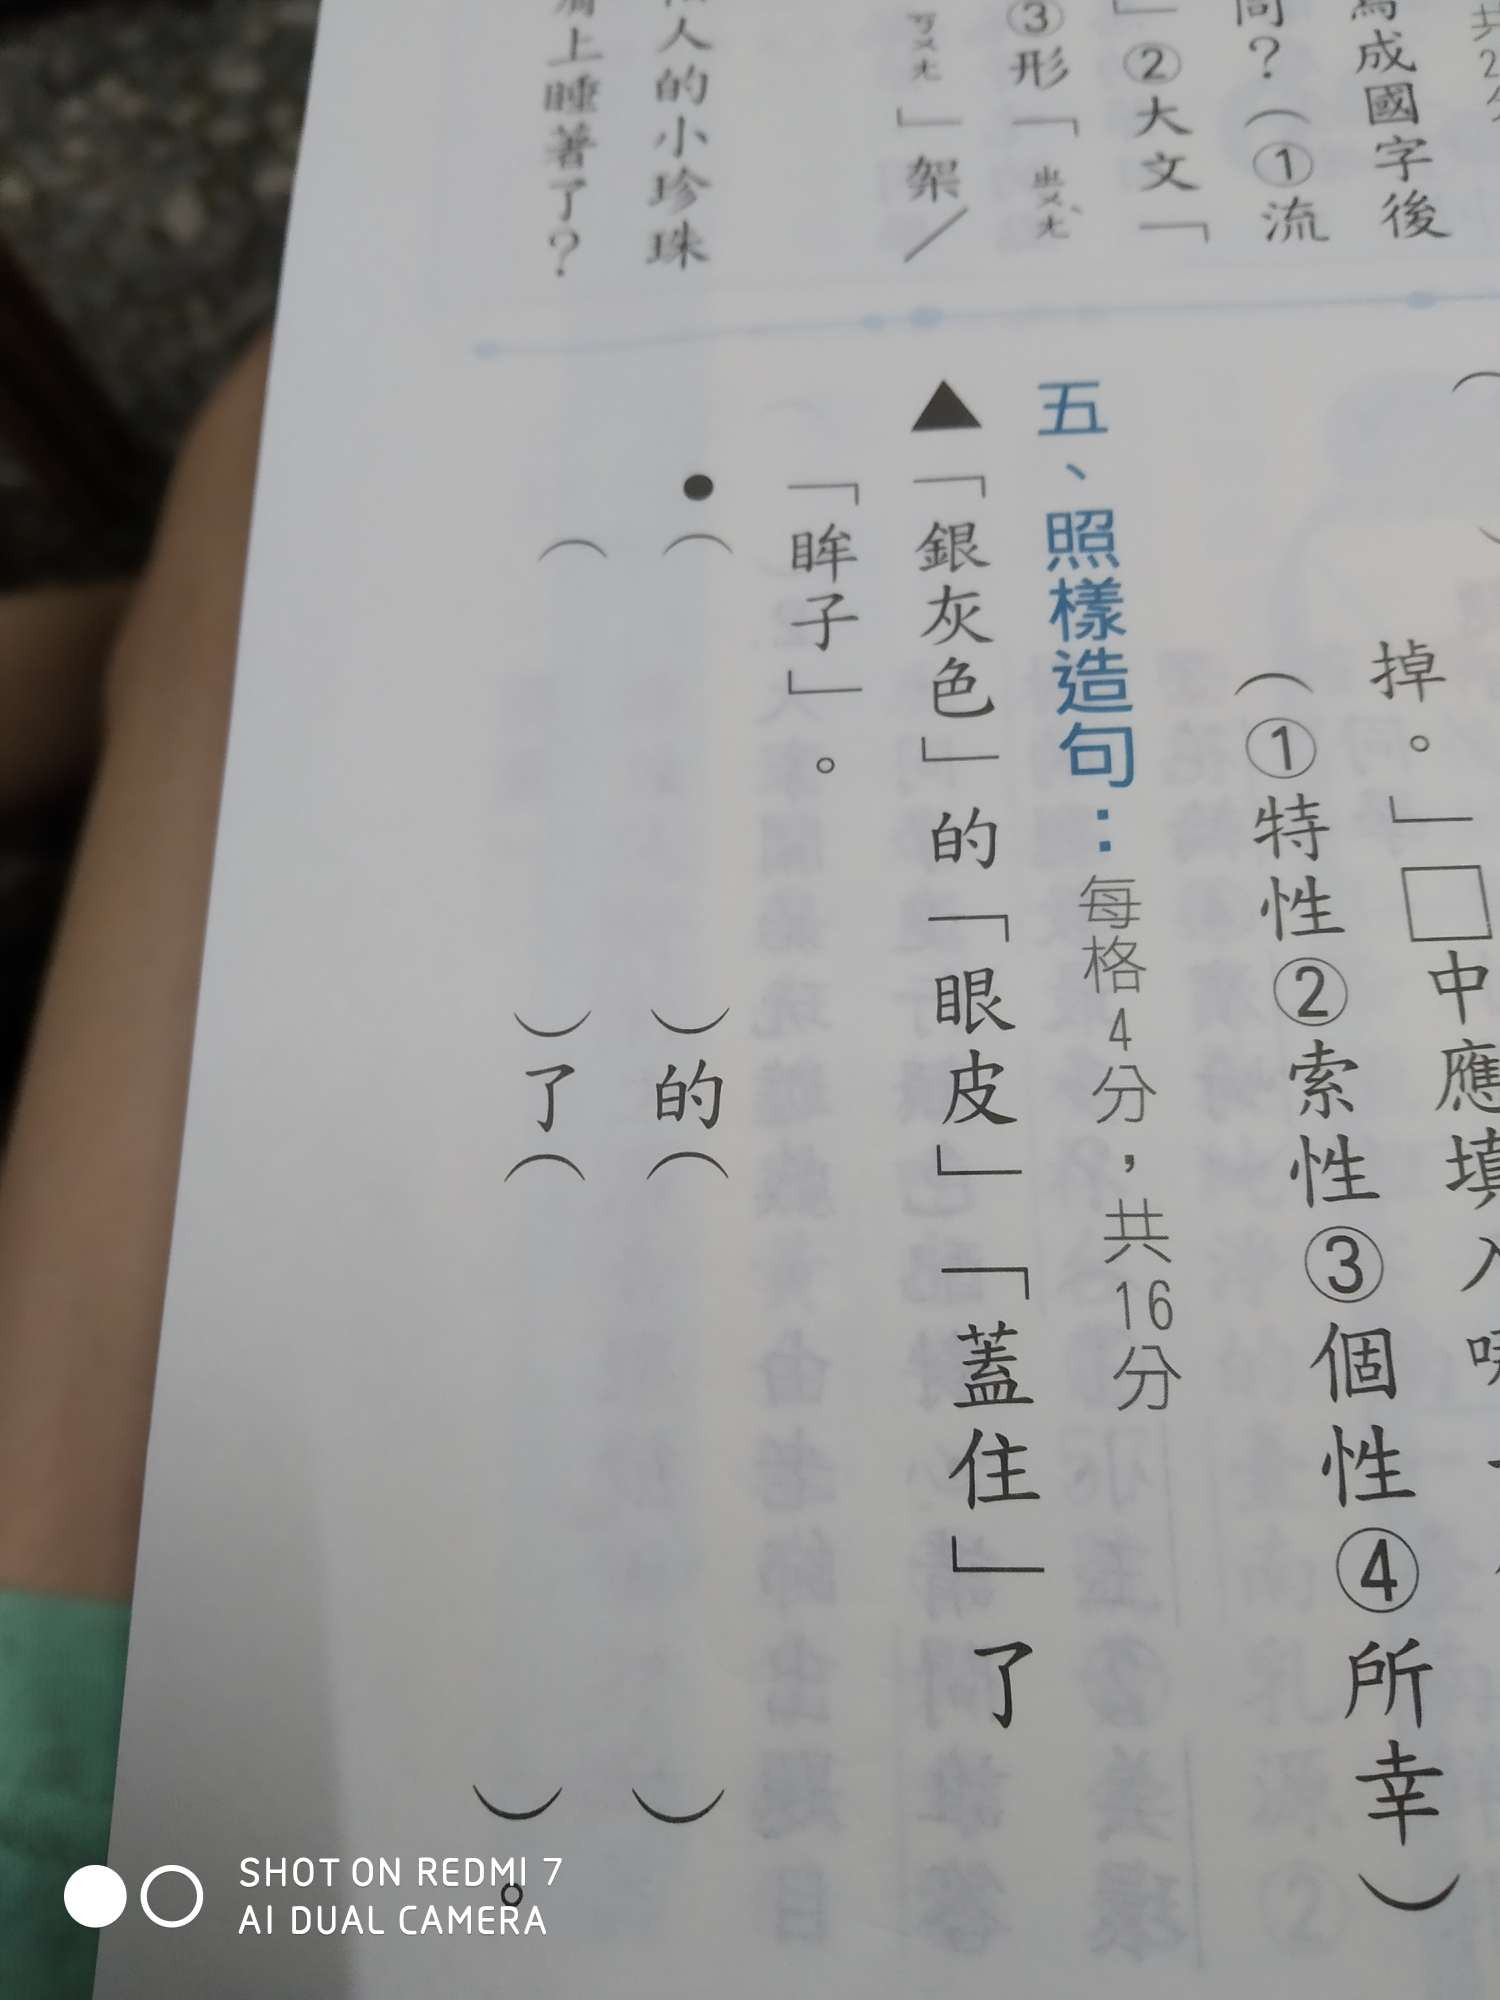 共2分
寫成國字後
同？（①流
」②大文「
③形「ㄓㄨㄤˋ
ㄎㄨㄤ」架／
人的小珍珠
上睡著了？
掉。」□中應填入
（①特性②索性③個性④所幸）
五、照樣造句：每格4分，共16分
▲「銀灰色」的「眼皮」「蓋住」了
「眸子」。
●（　　　）的（　　　）
（　　　）了（　　　）。
SHOT ON REDMI 7
AI DUAL CAMERA